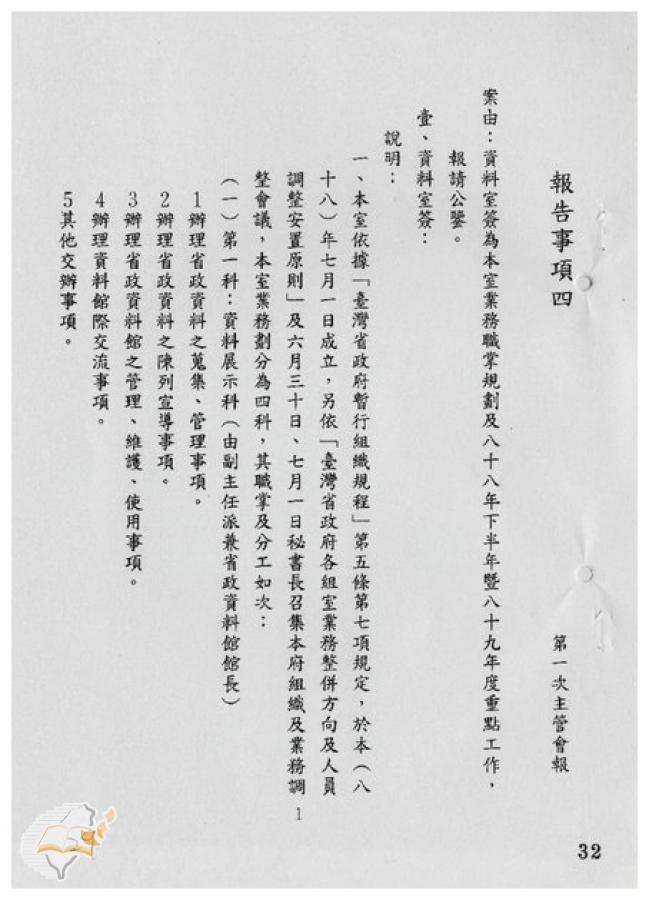 報告事項四
第一次主管會報
案由：資料室簽為本室業務職掌規劃及八十八年下半年暨八十九年度重點工作，
報請公鑒。
壹、資料室簽：
說明：
一、本室依據「臺灣省政府暫行組織規程」第五條第七項規定，於本（八
十八）年七月一日成立，另依「臺灣省政府各組室業務整併方向及人員
調整安置原則」及六月三十日、七月一日秘書長召集本府組織及業務調
整會議，本室業務劃分為四科，其職掌及分工如次：
（一）第一科：資料展示科（由副主任派兼省政資料館館長）
1辦理省政資料之蒐集、管理事項。
2辦理省政資料之陳列宣導事項。
3辦理省政資料館之管理、維護、使用事項。
4辦理資料館際交流事項。
5其他交辦事項。
1
32